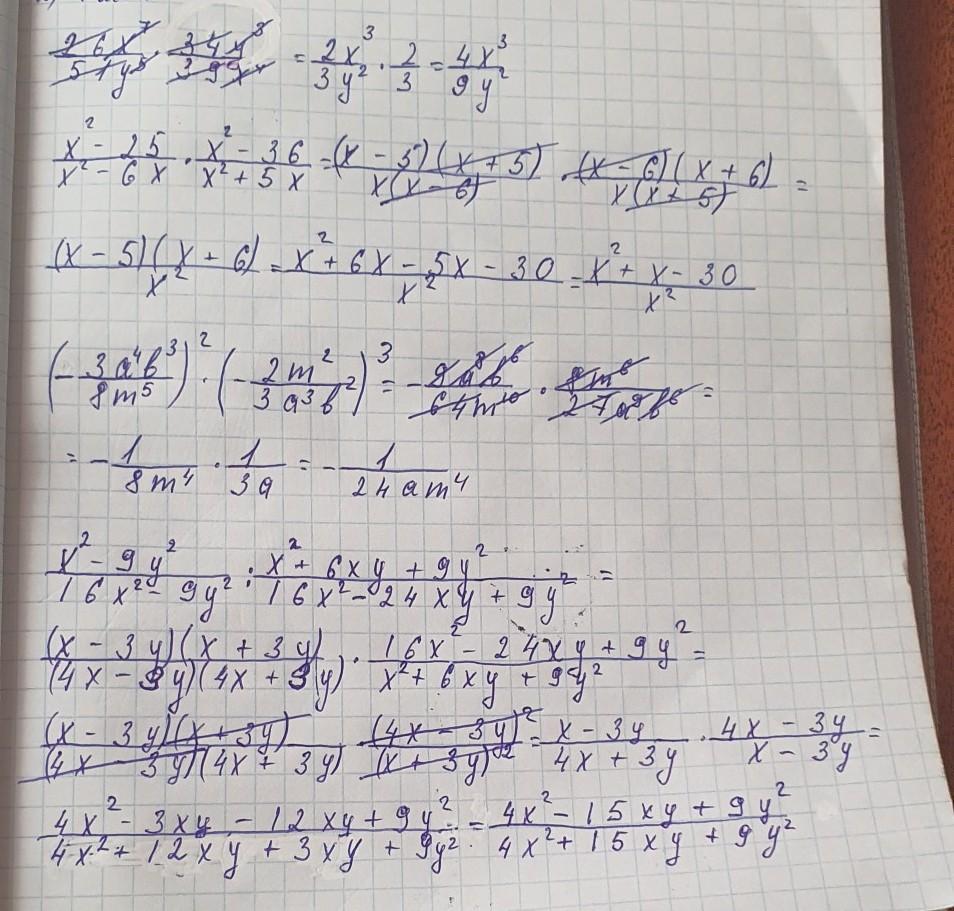 26x⁷/51y⁵ · 34y³/39x⁴ = 2x³/3y² · 2/3 = 4x³/9y²
x² - 25/x² - 6x · x² - 36/x² + 5x = (x - 5)(x + 5)/x(x - 6) · (x - 6)(x + 6)/x(x + 5) =
(x - 5)(x + 6)/x² = x² + 6x - 5x - 30/x² = x² + x - 30/x²
(- 3a⁴b³/8m⁵)² · (- 2m²/3a³b²)³ = - 9a⁸b⁶/64m¹⁰ · 8m⁶/27a⁹b⁶ =
= - 1/8m⁴ · 1/3a = - 1/24am⁴
x² - 9y²/16x² - 9y² : x² + 6xy + 9y²/16x² - 24xy + 9y² =
(x - 3y)(x + 3y)/(4x - 3y)(4x + 3y) · 16x² - 24xy + 9y²/x² + 6xy + 9y² =
(x - 3y)(x + 3y)/(4x - 3y)(4x + 3y) · (4x - 3y)²/(x + 3y)² = x - 3y/4x + 3y · 4x - 3y/x - 3y =
4x² - 3xy - 12xy + 9y²/4x² + 12xy + 3xy + 9y² = 4x² - 15xy + 9y²/4x² + 15xy + 9y²